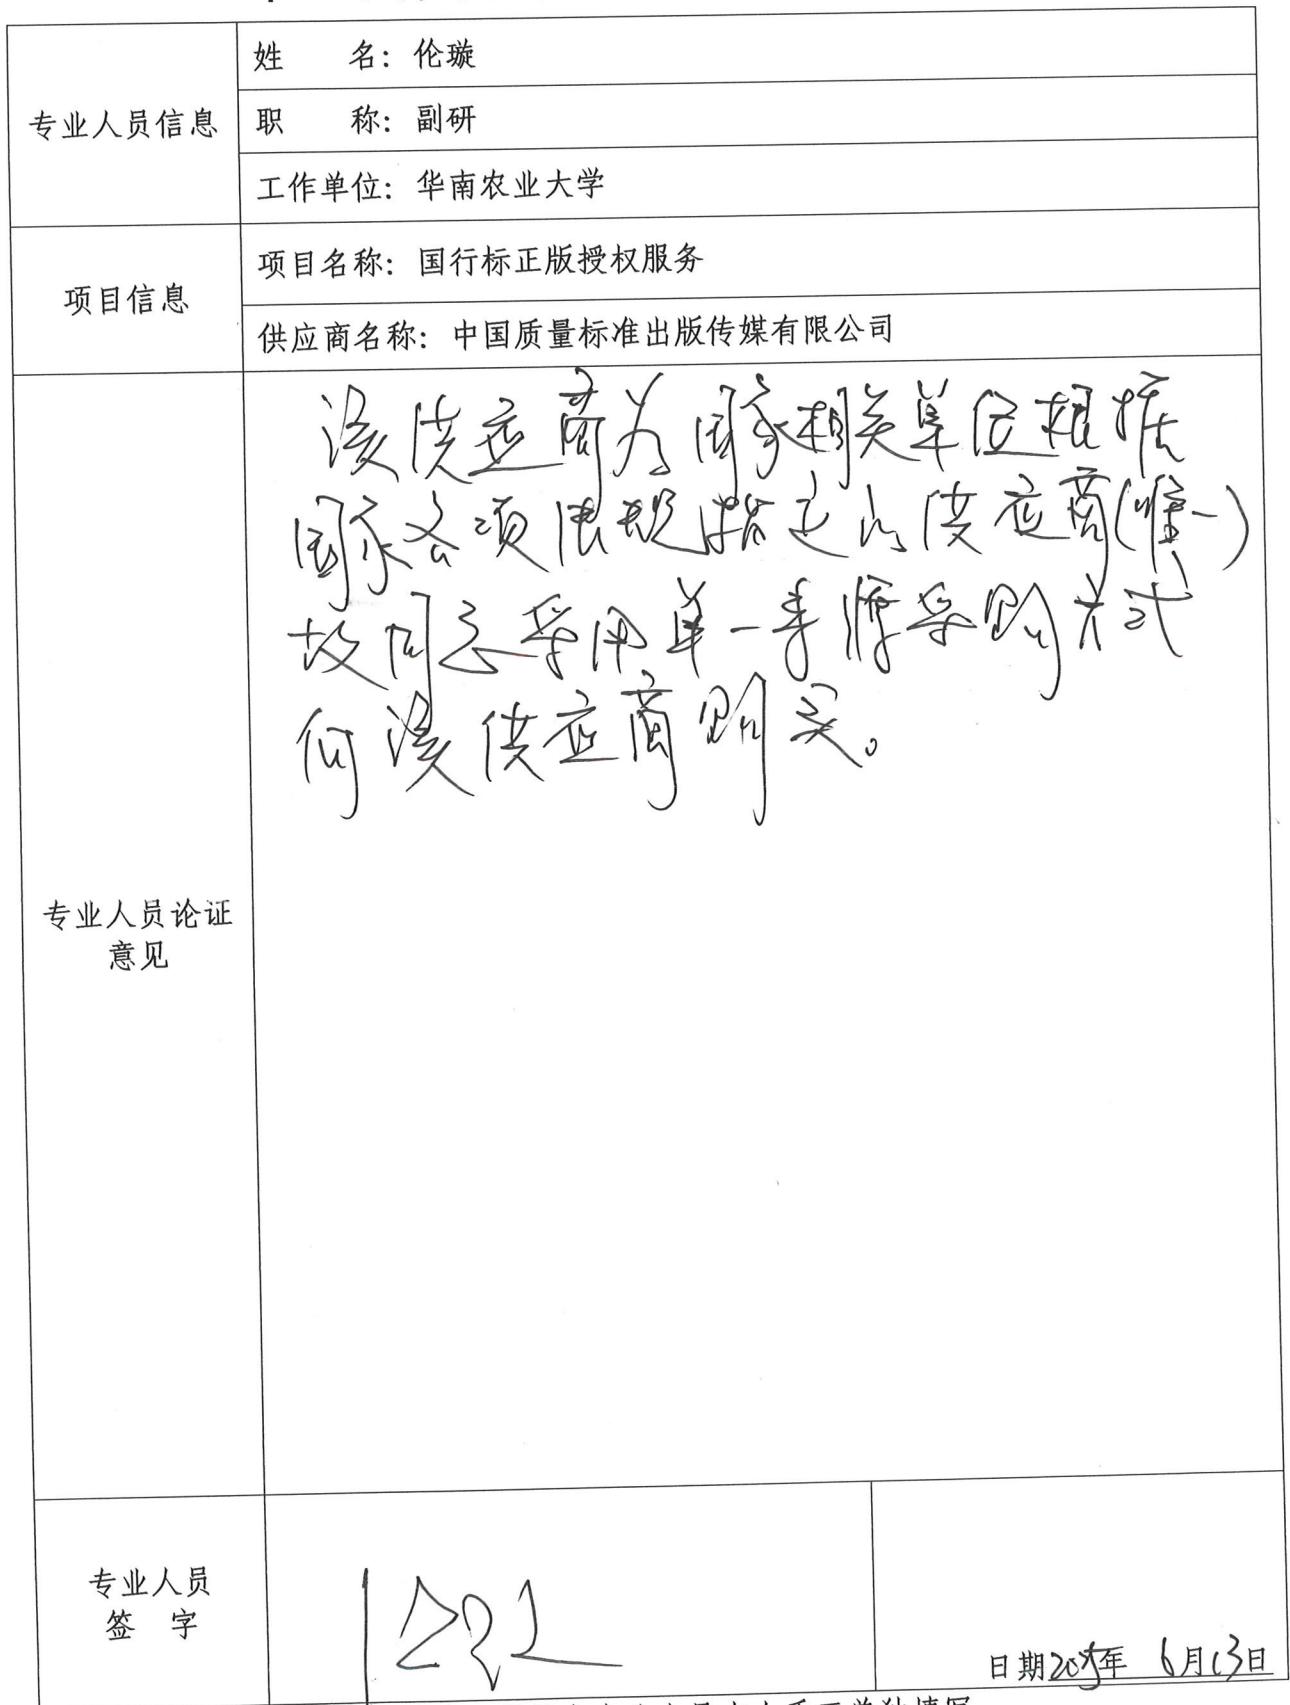 专业人员信息
姓 名：伦璇
职 称：副研
工作单位：华南农业大学
项目信息
项目名称：国行标正版授权服务
供应商名称：中国质量标准出版传媒有限公司
专业人员论证
意见
该供应商为国家相关单位根据
国家各项法规指定的供应商(唯一)
故同意采用单一来源采购方式
向该供应商购买。
专业人员
签 字
日期 年 6月13日